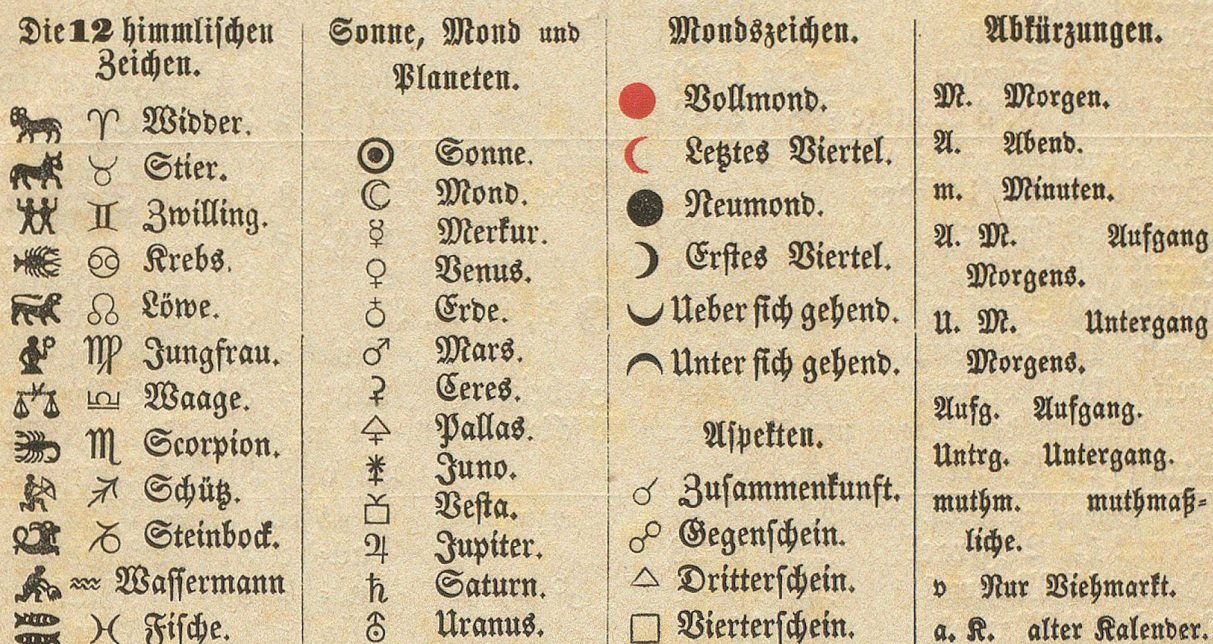 Die 12 himmlischen
Zeichen.
♈ Widder.
♉ Stier.
♊ Zwilling.
♋ Krebs.
♌ Löwe.
♍ Jungfrau.
♎ Waage.
♏ Scorpion.
♐ Schütz.
♑ Steinbock.
♒ Wassermann
♓ Fische.
Sonne, Mond und
Planeten.
☉ Sonne.
☾ Mond.
☿ Merkur.
♀ Venus.
♁ Erde.
♂ Mars.
⚳ Ceres.
⚴ Pallas.
⚵ Juno.
⚶ Vesta.
♃ Jupiter.
♄ Saturn.
⛢ Uranus.
Mondszeichen.
Vollmond.
Letztes Viertel.
Neumond.
Erstes Viertel.
Ueber sich gehend.
Unter sich gehend.
Aspekten.
☌ Zusammenkunft.
☍ Gegenschein.
△ Dritterschein.
□ Vierterschein.
Abkürzungen.
M. Morgen.
A. Abend.
m. Minuten.
A. M. Aufgang
Morgens.
U. M. Untergang
Morgens.
Aufg. Aufgang.
Untrg. Untergang.
muthm. muthmaß-
liche.
v Nur Viehmarkt.
a. K. alter Kalender.